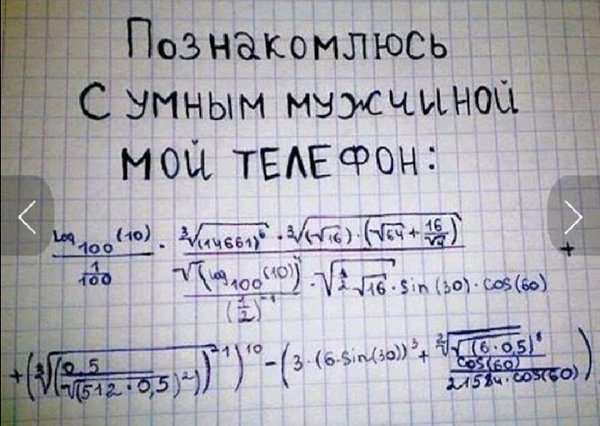 Познакомлюсь
с умным мужчиной
мой телефон:
Log₁₀₀(10) / (1/100) · ∛(14661)⁶ · ∛(√16)·(√64+16/√4) / √(log₁₀₀(10))⁴ / (1/2)⁻¹ · √(1/2 √16) · sin(30) · cos(60) +
+(∛(0,5 / √(512·0,5)²))²⁻¹)¹⁰ − (3·(6·sin(30))³ + ∛√(6·0,5)⁶ / cos(60) / 21584·cos(60))